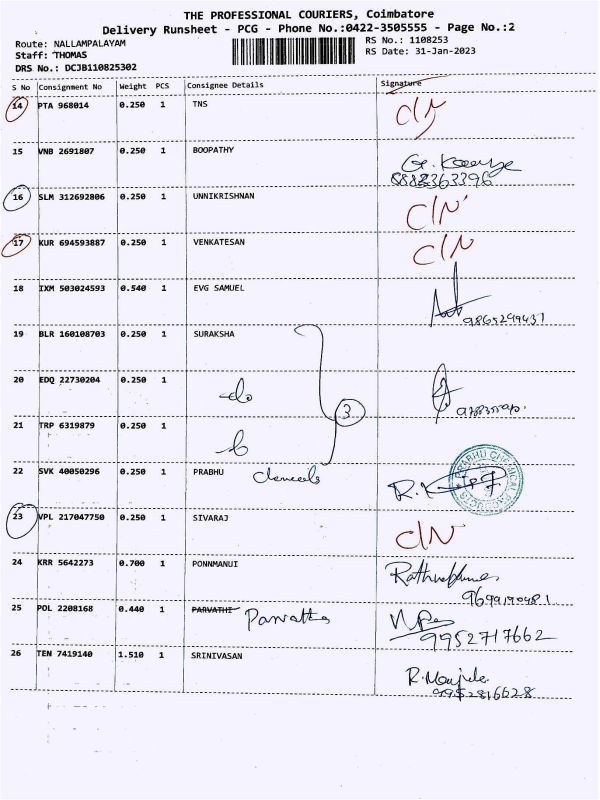 THE PROFESSIONAL COURIERS, Coimbatore
Delivery Runsheet - PCG - Phone No.:0422-3505555 - Page No.:2
Route: NALLAMPALAYAM
Staff: THOMAS
DRS No.: DCJB110825302
RS No.: 1108253
RS Date: 31-Jan-2023
S No Consignment No Weight PCS Consignee Details Signature
14 PTA 968014 0.250 1 TNS C/N
15 VNB 2691807 0.250 1 BOOPATHY
8882363396
16 SLM 312692806 0.250 1 UNNIKRISHNAN C/N
17 KUR 694593887 0.250 1 VENKATESAN C/N
18 IXM 503024593 0.540 1 EVG SAMUEL
9865299431
19 BLR 160108703 0.250 1 SURAKSHA
20 EDQ 22730204 0.250 1 do
3
21 TRP 6319879 0.250 1
22 SVK 40050296 0.250 1 PRABHU
23 VPL 217047750 0.250 1 SIVARAJ C/N
24 KRR 5642273 0.700 1 PONNMANUI
25 POL 2208168 0.440 1 PARVATHI
9952717662
26 TEN 7419140 1.510 1 SRINIVASAN
9952816628